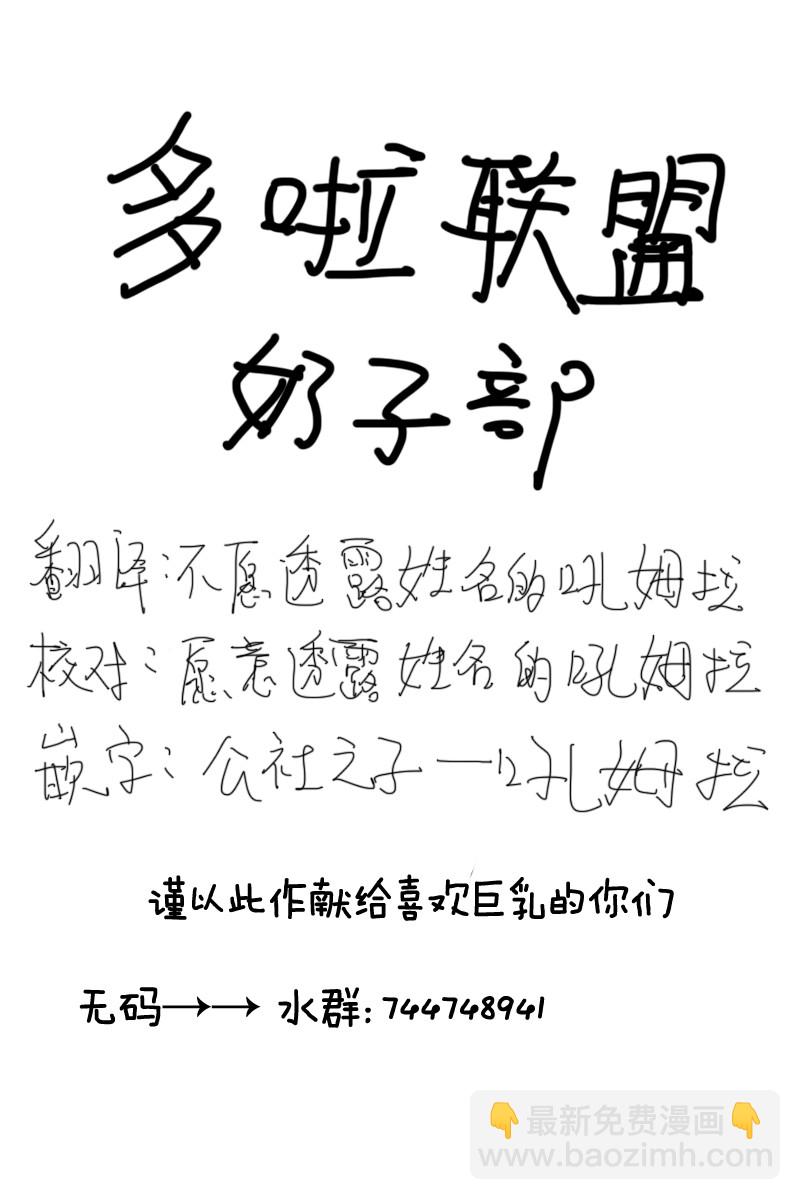 多啦联盟
奶子部
翻译:不愿透露姓名的吼姆拉
校对:愿意透露姓名的吼姆拉
嵌字:公社之子一吼姆拉
谨以此作献给喜欢巨乳的你们
无码→→ 水群:744748941
👇最新免费漫画👇
www.baozimh.com